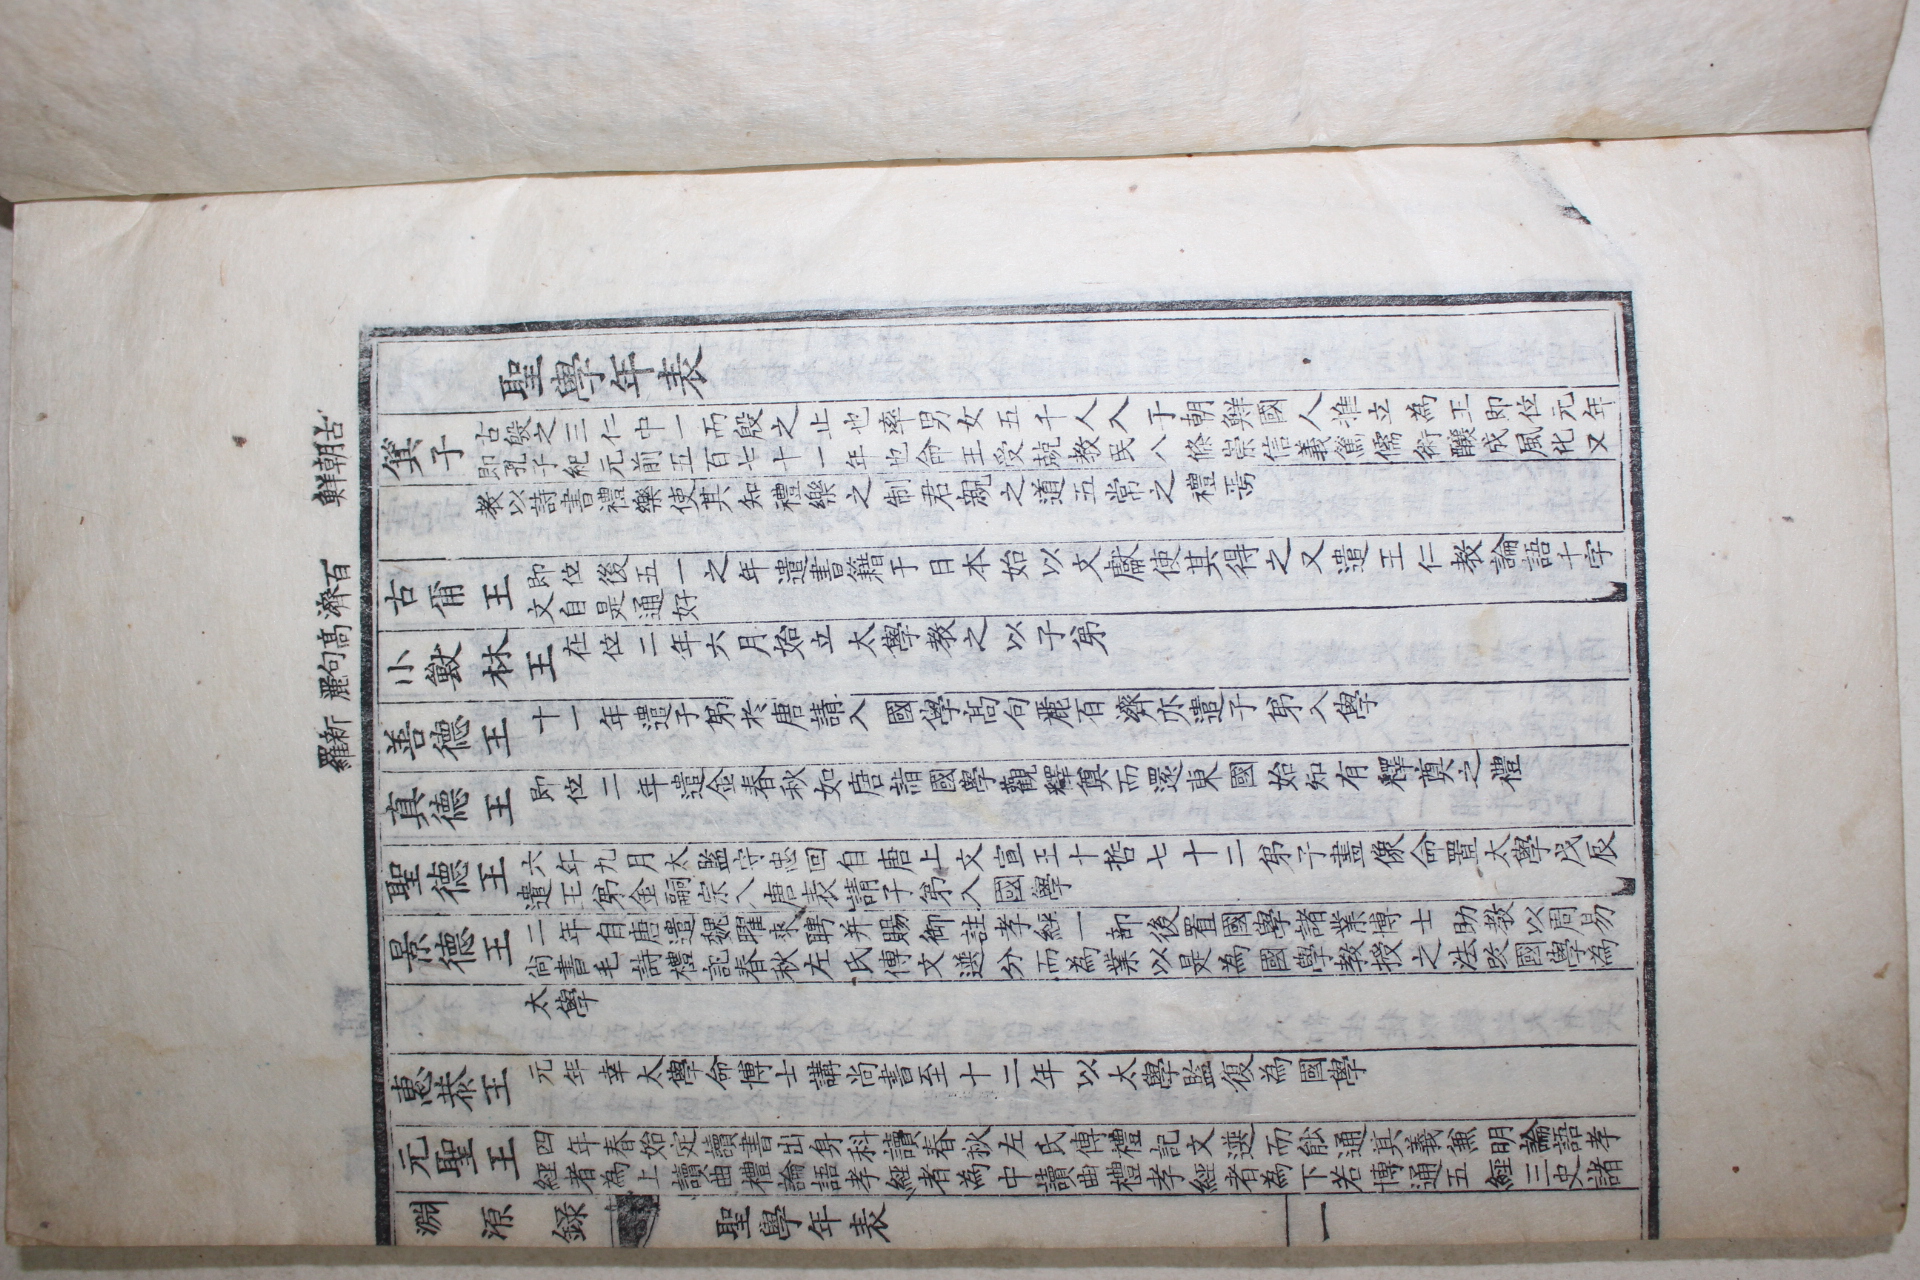 古朝鮮
百濟
高句麗
新羅
聖學年表
箕子
古殷之三仁中一而殷之止也率男女五千人入于朝鮮國人推立為王即位元年
即孔子紀元前五百七十一年也命王受兢教民八條崇信義篤儒術釀成風化又
教以詩書禮樂使其知禮樂之制君親之道五常之禮焉
古爾王
即位後五一之年遣書籍于日本始以文獻使其得之又遣王仁教論語千字
文自是通好
小獸林王
在位二年六月始立太學教之以子弟
善德王
十一年遣子弟於唐請入國學高句麗百濟亦遣子弟入學
真德王
即位二年遣金春秋如唐詣國學觀釋奠而還東國始知有釋奠之禮
聖德王
六年九月太監守忠回自唐上文宣王十哲七十二弟子畫像命置太學戊辰
遣王弟金嗣宗入唐表請子弟入國學
景德王
二年自唐遣魏曜來聘并賜御註孝經一部後置國學諸業博士助教以周易
尚書毛詩禮記春秋左氏傳文選分而為業以是為國學教授之法改國學為
太學
惠恭王
元年幸太學命博士講尚書至十二年以太學監復為國學
元聖王
四年春始定讀書出身科讀春秋左氏傳禮記文選而能通其義兼明論語孝
經者為上讀曲禮論語孝經者為中讀曲禮孝經者為下若博通五經三史諸
淵源錄 聖學年表 一